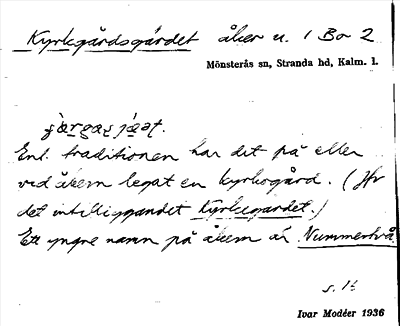 Kyrkogårdsgärdet åker u. 1 Bo 2
Mönsterås sn, Stranda hd, Kalm. l.
Enl. traditionen har det på eller
vid åkern legat en kyrkogård. (Jfr
det intilliggandet Kyrkegärdet.)
Ett yngre namn på åkern är Nummertvå.
Ivar Modéer 1936